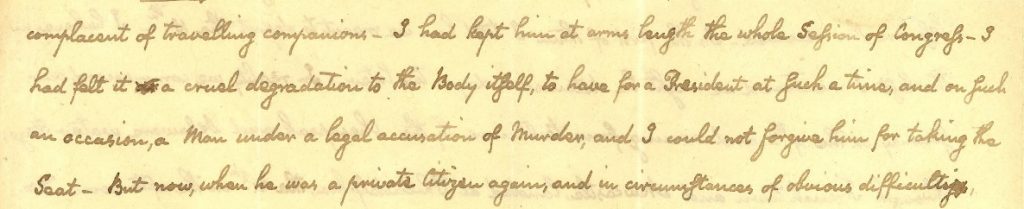 complacent of travelling companions – I had kept him at arms length the whole Seſsion of Congreſs – I
had felt it a cruel degradation to the Body itſelf, to have for a President at ſuch a time, and on ſuch
an occasion, a Man under a legal accusation of Murder, and I could not forgive him for taking the
Seat – But now, when he was a private Citizen again, and in circumſtances of obvious difficulty,